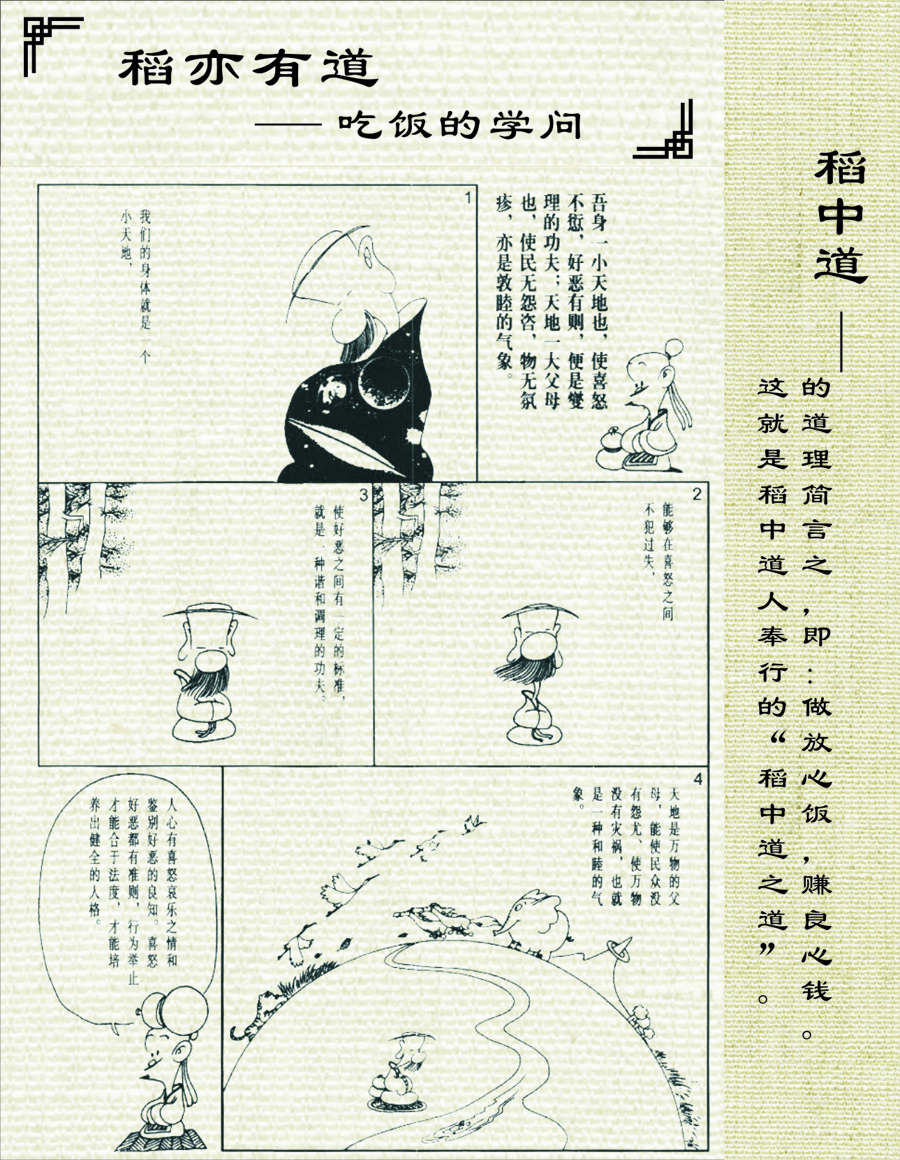 稻亦有道
——吃饭的学问
吾身一小天地也，使喜怒
不愆，好恶有则，便是燮
理的功夫；天地一大父母
也，使民无怨咨，物无氛
疹，亦是敦睦的气象。
1
我们的身体就是一个
小天地，
2
能够在喜怒之间
不犯过失，
3
使好恶之间有一定的标准，
就是一种谐和调理的功夫。
4
天地是万物的父
母，能使民众没
有怨尤、使万物
没有灾祸，也就
是一种和睦的气
象。
人心有喜怒哀乐之情和
鉴别好恶的良知。喜怒
好恶都有准则，行为举止
才能合于法度，才能培
养出健全的人格。
稻中道——
的道理简言之，即：做放心饭，赚良心钱。
这就是稻中道人奉行的“稻中道之道”。